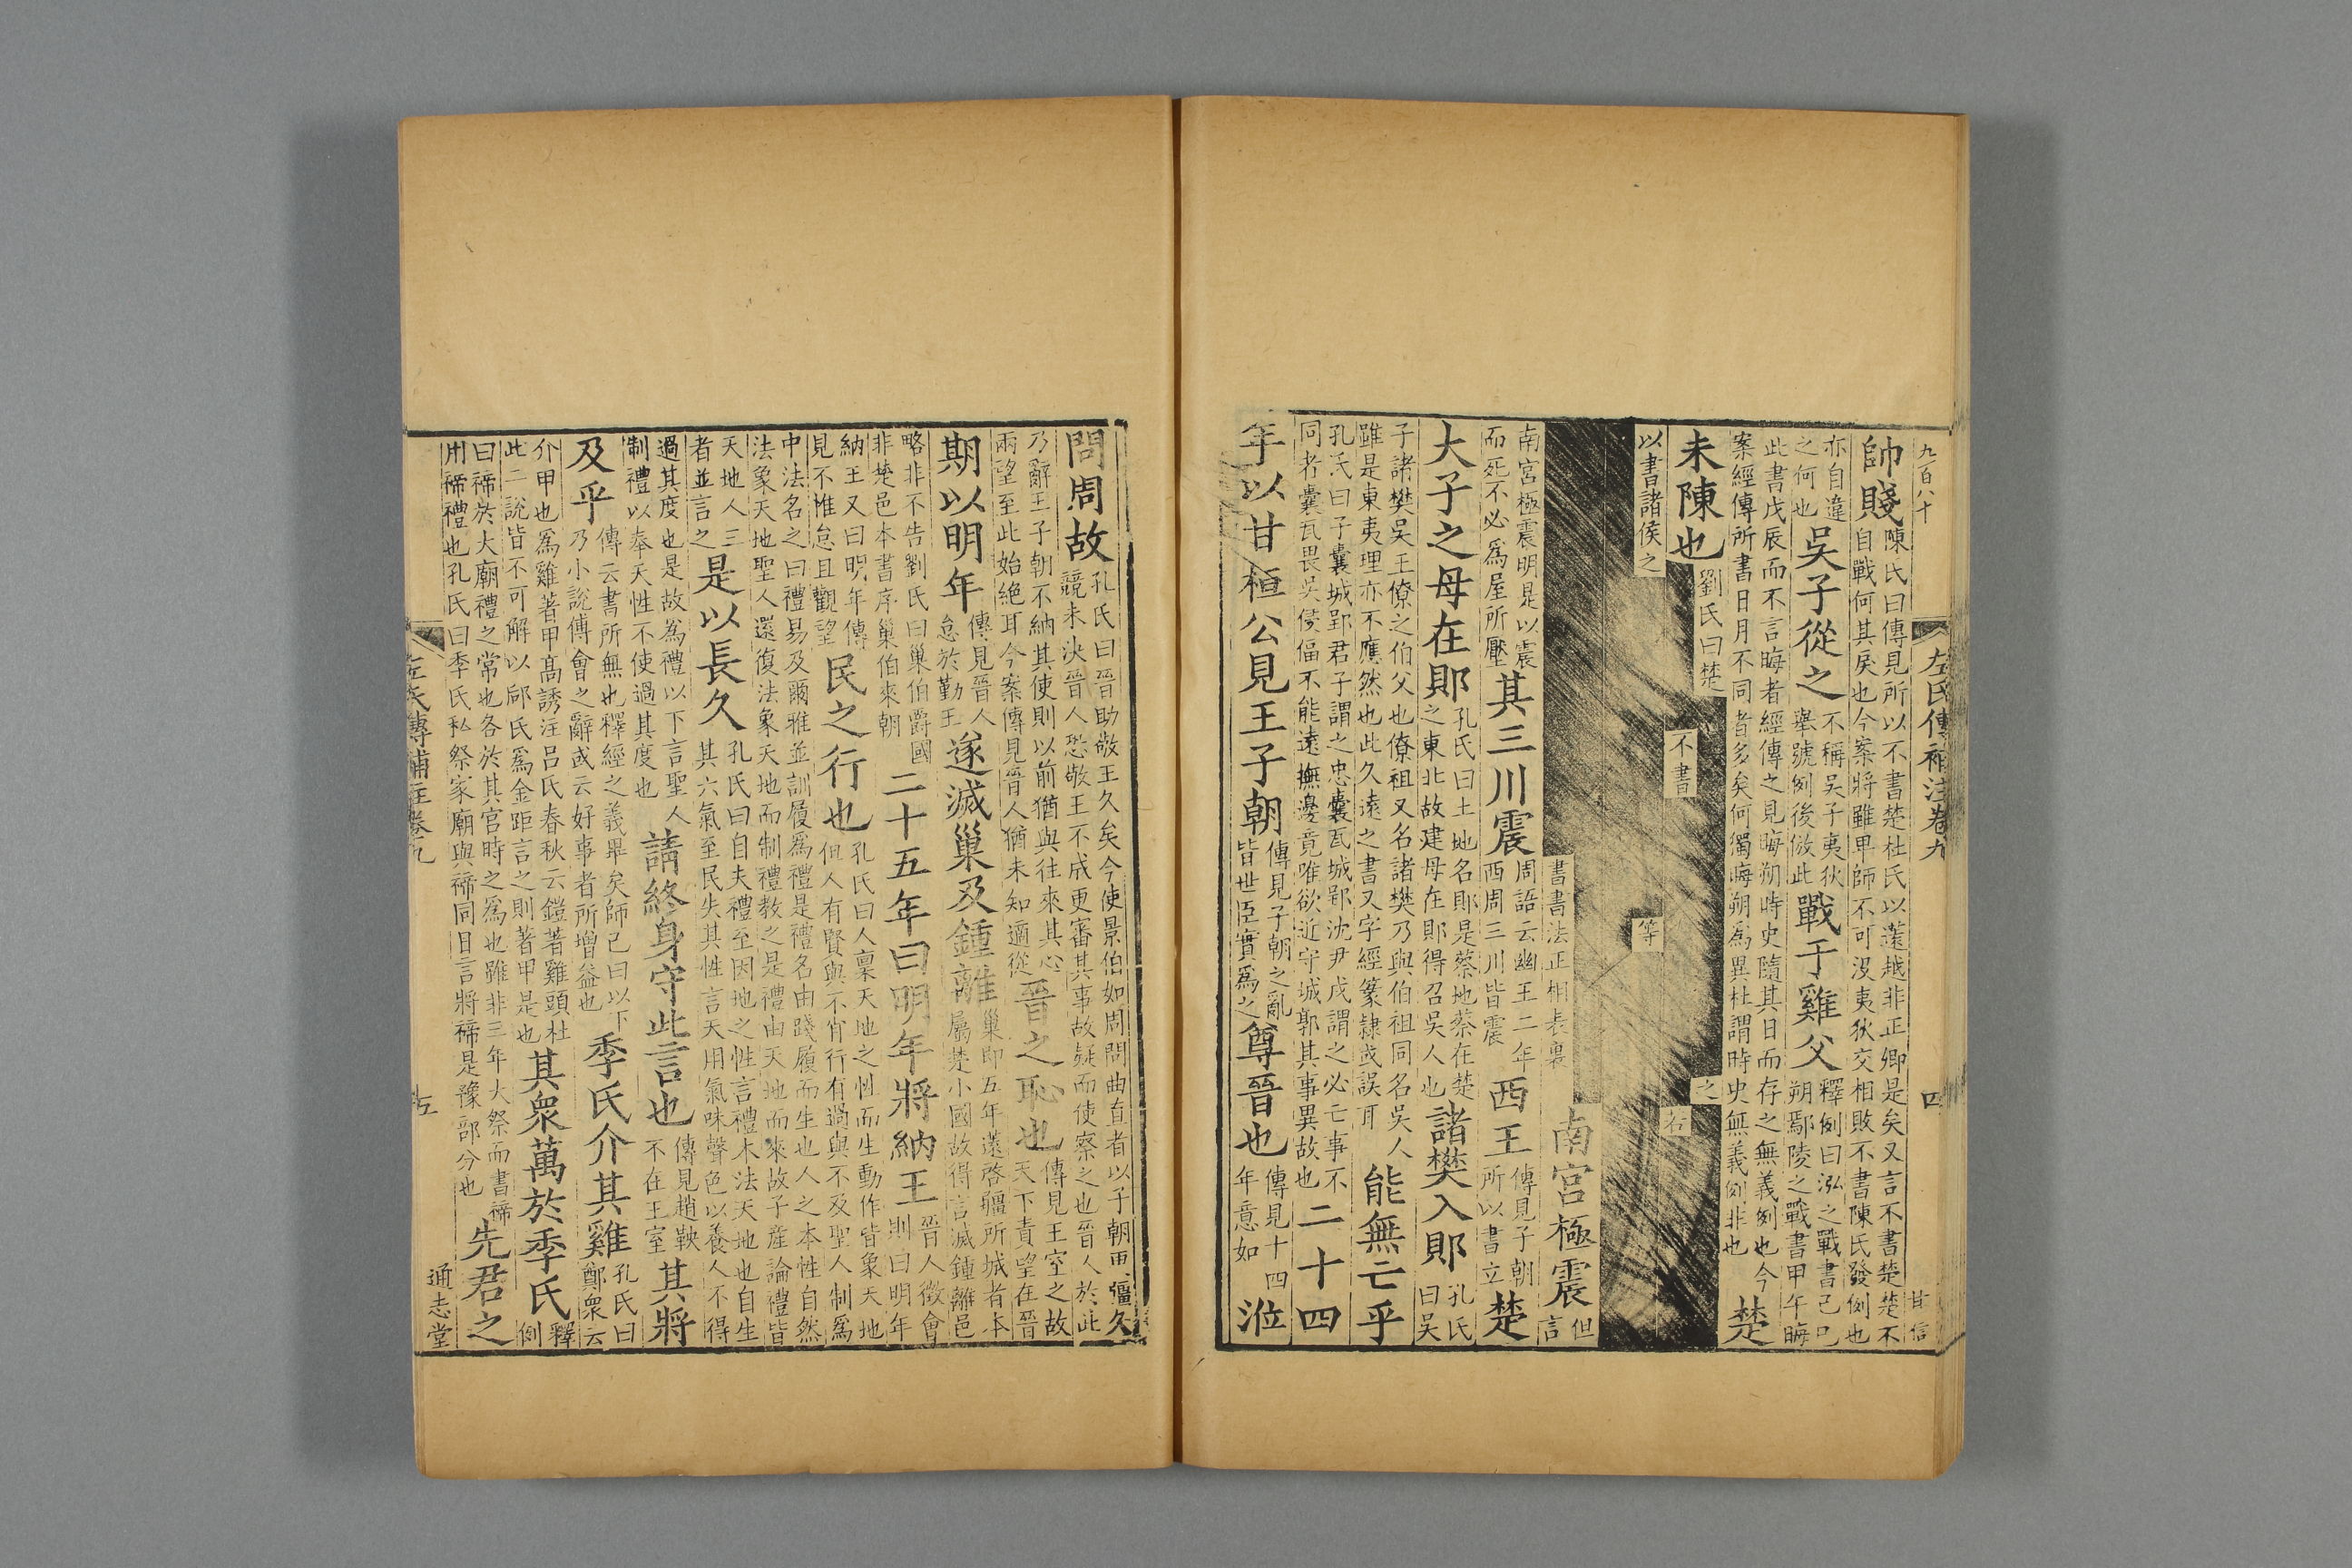 九百八十
左氏傳補注卷九
四
甘信
帥賤陳氏曰傳見所以不書楚杜氏以薳越非正卿是矣又言不書楚楚不
自戰何其戾也今案將雖甲師不可没夷狄交相敗不書陳氏發例也
亦自違
之何也吳子從之不稱吳子夷狄
舉號例後倣此戰于雞父釋例曰泓之戰書己巳
朔鄢陵之戰書甲午晦
此書戊辰而不言晦者經傳之見晦朔時史隨其日而存之無義例也今
案經傳所書日月不同者多矣何獨晦朔為異杜謂時史無義例非也楚
未陳也劉氏曰楚
不書
之
若
以書諸侯之
等
書書法正相表裏南宮極震但
言
南宮極震明是以震
而死不必為屋所壓其三川震周語云幽王二年
西周三川皆震西王傳見子朝
所以書立楚
大子之母在郹孔氏曰土地名郹是蔡地蔡在楚
之東北故建母在郹得召吳人也諸樊入郹孔氏
曰吳
子諸樊吳王僚之伯父也僚祖又名諸樊乃與伯祖同名吳人
雖是東夷理亦不應然也此久遠之書又字經篆隸或誤耳能無亡乎
孔氏曰子囊城郢君子謂之忠囊瓦城郢沈尹戌謂之必亡事不
同者囊瓦畏吳侵偪不能遠撫邊竟唯欲近守城郭其事異故也二十四
年以甘桓公見王子朝傳見子朝之亂
皆世臣實為之尊晉也傳見十四
年意如涖
問周故孔氏曰晉助敬王久矣今使景伯如周問曲直者以子朝更彊久
競未決晉人恐敬王不成更審其事故疑而使察之也晉人於此
乃辭王子朝不納其使則以前猶與往來其心
兩望至此始絕耳今案傳見晉人猶未知適從晉之恥也傳見王室之故
天下責望在晉
期以明年傳見晉人
怠於勤王遂滅巢及鍾離巢即五年薳啓彊所城者本
屬楚小國故得言滅鍾離邑
略非不告劉氏曰巢伯爵國
非楚邑本書序巢伯來朝二十五年曰明年將納王晉人徵會
則曰明年
納王又曰明年傳
見不惟怠且觀望民之行也孔氏曰人稟天地之性而生動作皆象天地
但人有賢與不肖行有過與不及聖人制為
中法名之曰禮易及爾雅並訓履為禮是禮名由踐履而生也人之本性自然
法象天地聖人還復法象天地而制禮教之是禮由天地而來故子產論禮皆
天地人三
者並言之是以長久孔氏曰自夫禮至因地之性言禮本法天地也自生
其六氣至民失其性言天用氣味聲色以養人不得
過其度也是故為禮以下言聖人
制禮以奉天性不使過其度也請終身守此言也傳見趙鞅
不在王室其將
及乎傳云書所無也釋經之義畢矣師己曰以下
乃小說傅會之辭或云好事者所增益也季氏介其雞孔氏曰
鄭衆云
介甲也為雞著甲高誘注呂氏春秋云鎧著雞頭杜
此二說皆不可解以郈氏為金距言之則著甲是也其衆萬於季氏釋
例
曰禘於大廟禮之常也各於其宮時之為也雖非三年大祭而書禘
用禘禮也孔氏曰季氏私祭家廟與禘同日言將禘是豫部分也先君之
左氏傳補注卷九
五
通志堂